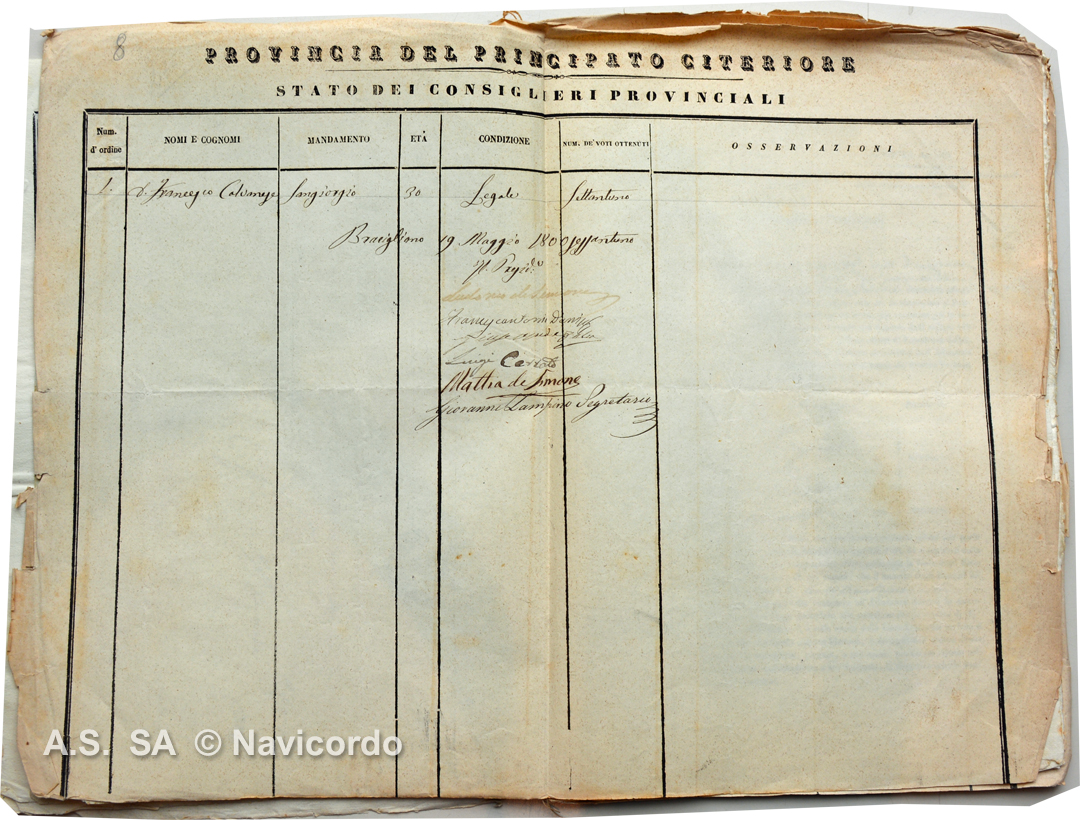 8
PROVINCIA DEL PRINCIPATO CITERIORE
STATO DEI CONSIGLIERI PROVINCIALI
Num. d' ordine
NOMI E COGNOMI
MANDAMENTO
ETÀ
CONDIZIONE
NUM. DE' VOTI OTTENUTI
OSSERVAZIONI
1. D. Francesco Calvanese Sangiorgio 30 Legale Settantuno
Bracigliano 19 Maggio 1800sessantuno
Il Presid.e
de Simone
Francescantonio
Luigi
Mattia de Simone
Giovanni Segretario
A.S. SA © Navicordo